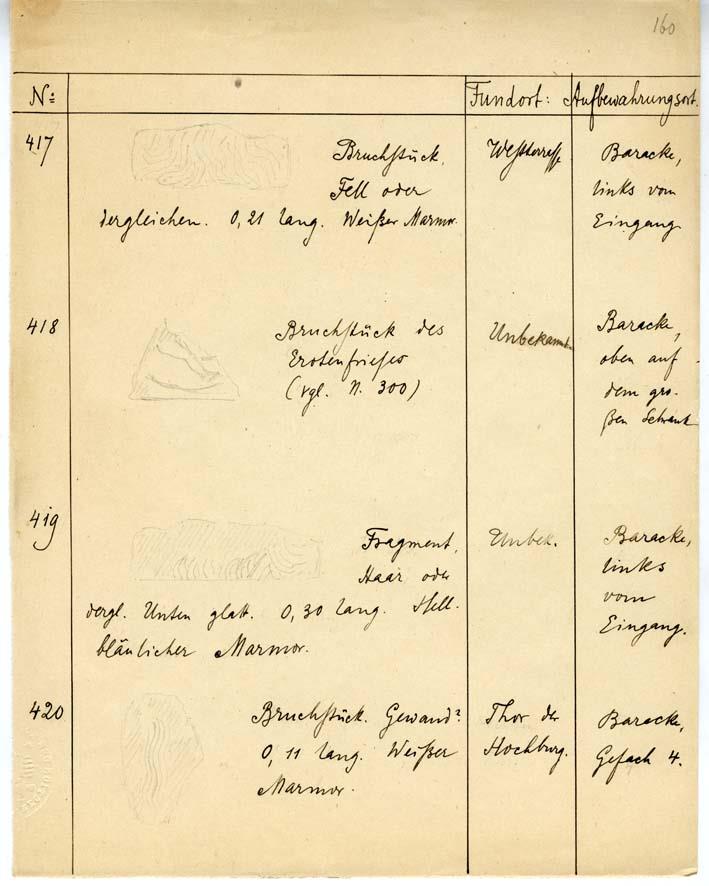 160
No: Fundort: Aufbewahrungsort.
417 Bruchstück, Westterrasse Baracke,
Fell oder links vom
dergleichen. 0,21 lang. Weißer Marmor. Eingang
418 Bruchstück des Unbekannt Baracke,
Erotenfrieses oben auf
(vgl. N. 300) dem gro-
ßen Schrank
419 Fragment, Unbek. Baracke,
Haar oder links
dergl. Unten glatt. 0,30 lang. Hell- vom
bläulicher Marmor. Eingang.
420 Bruchstück. Gewand? Thor der Baracke,
0,11 lang. Weißer Hochburg. Gefach 4.
Marmor.